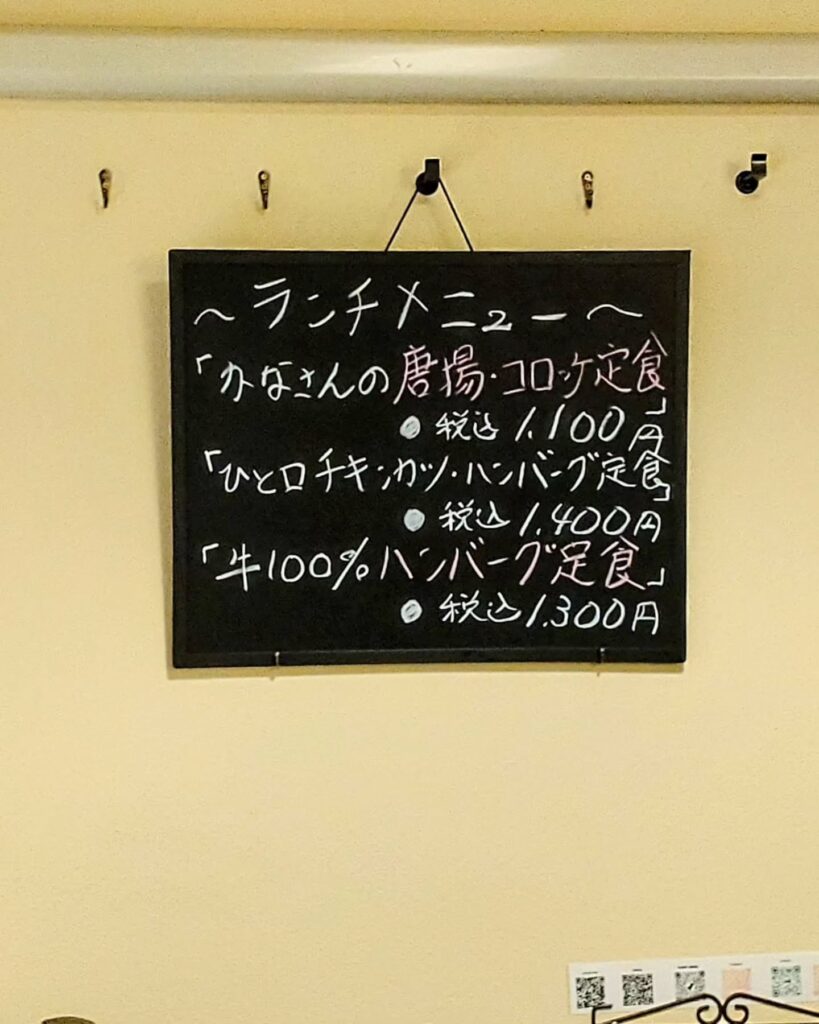 ～ランチメニュー～
「かなさんの唐揚・コロッケ定食」
● 税込 1.100円
「ひと口チキンカツ・ハンバーグ定食」
● 税込 1.400円
「牛100%ハンバーグ定食」
● 税込 1.300円